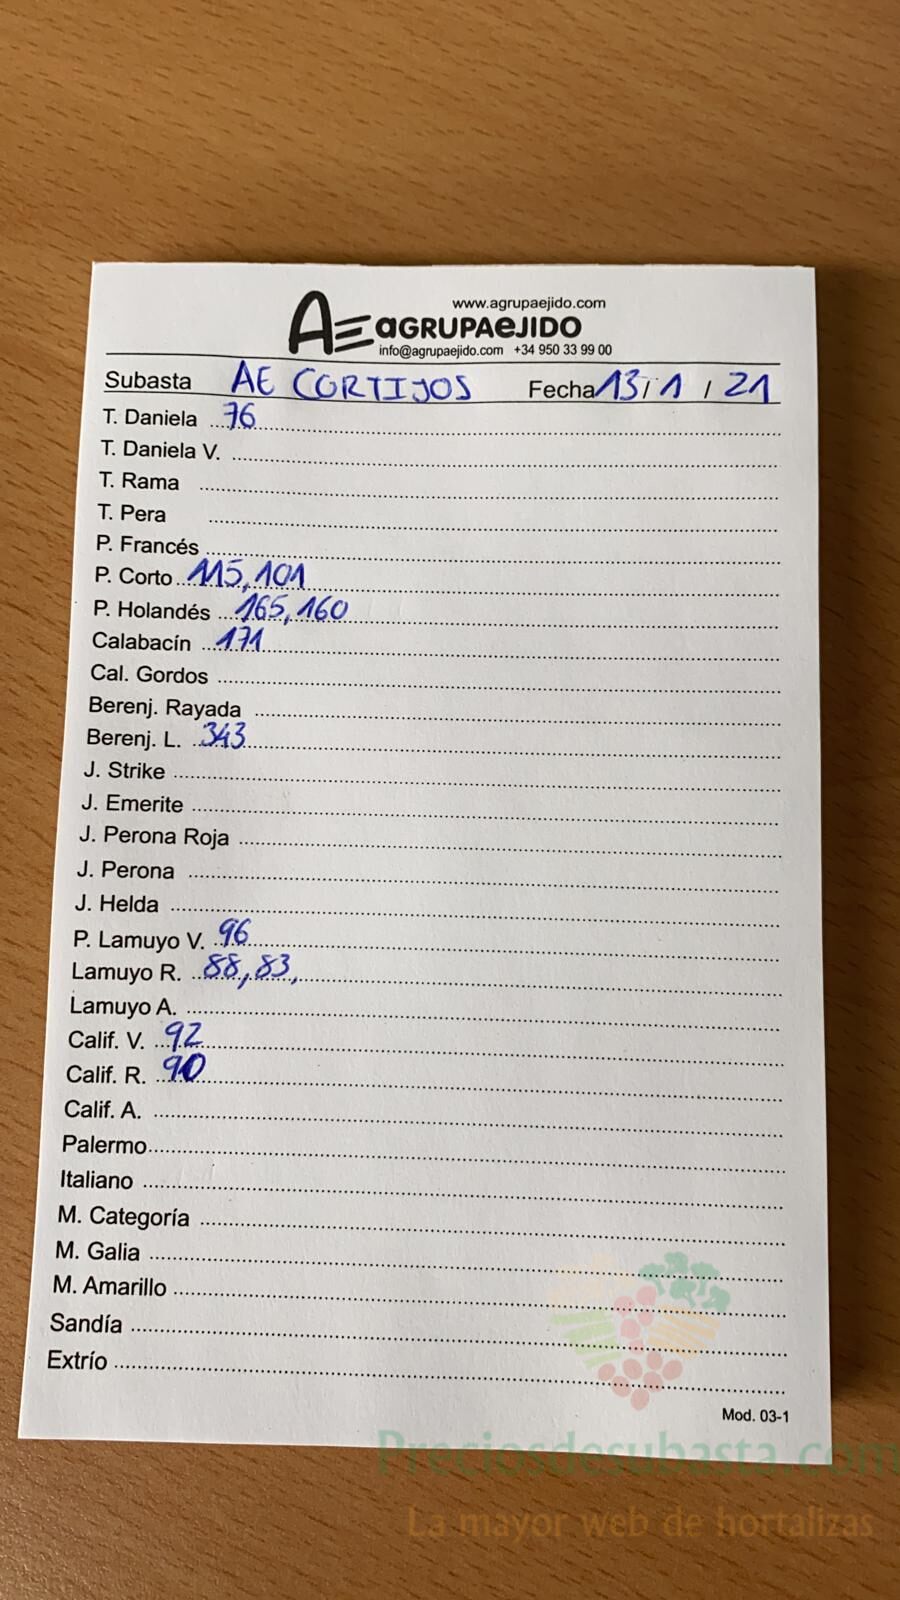 www.agrupaejido.com
AE aGRUPAeJIDO
info@agrupaejido.com +34 950 33 99 00
Subasta AE CORTIJOS Fecha 13/1/21
T. Daniela 76
T. Daniela V.
T. Rama
T. Pera
P. Francés
P. Corto 115, 101
P. Holandés 165, 160
Calabacín 171
Cal. Gordos
Berenj. Rayada
Berenj. L. 343
J. Strike
J. Emerite
J. Perona Roja
J. Perona
J. Helda
P. Lamuyo V. 96
Lamuyo R. 88, 83,
Lamuyo A.
Calif. V. 92
Calif. R. 90
Calif. A.
Palermo
Italiano
M. Categoría
M. Galia
M. Amarillo
Sandía
Extrío
Mod. 03-1
Preciosdesubasta.com
La mayor web de hortalizas